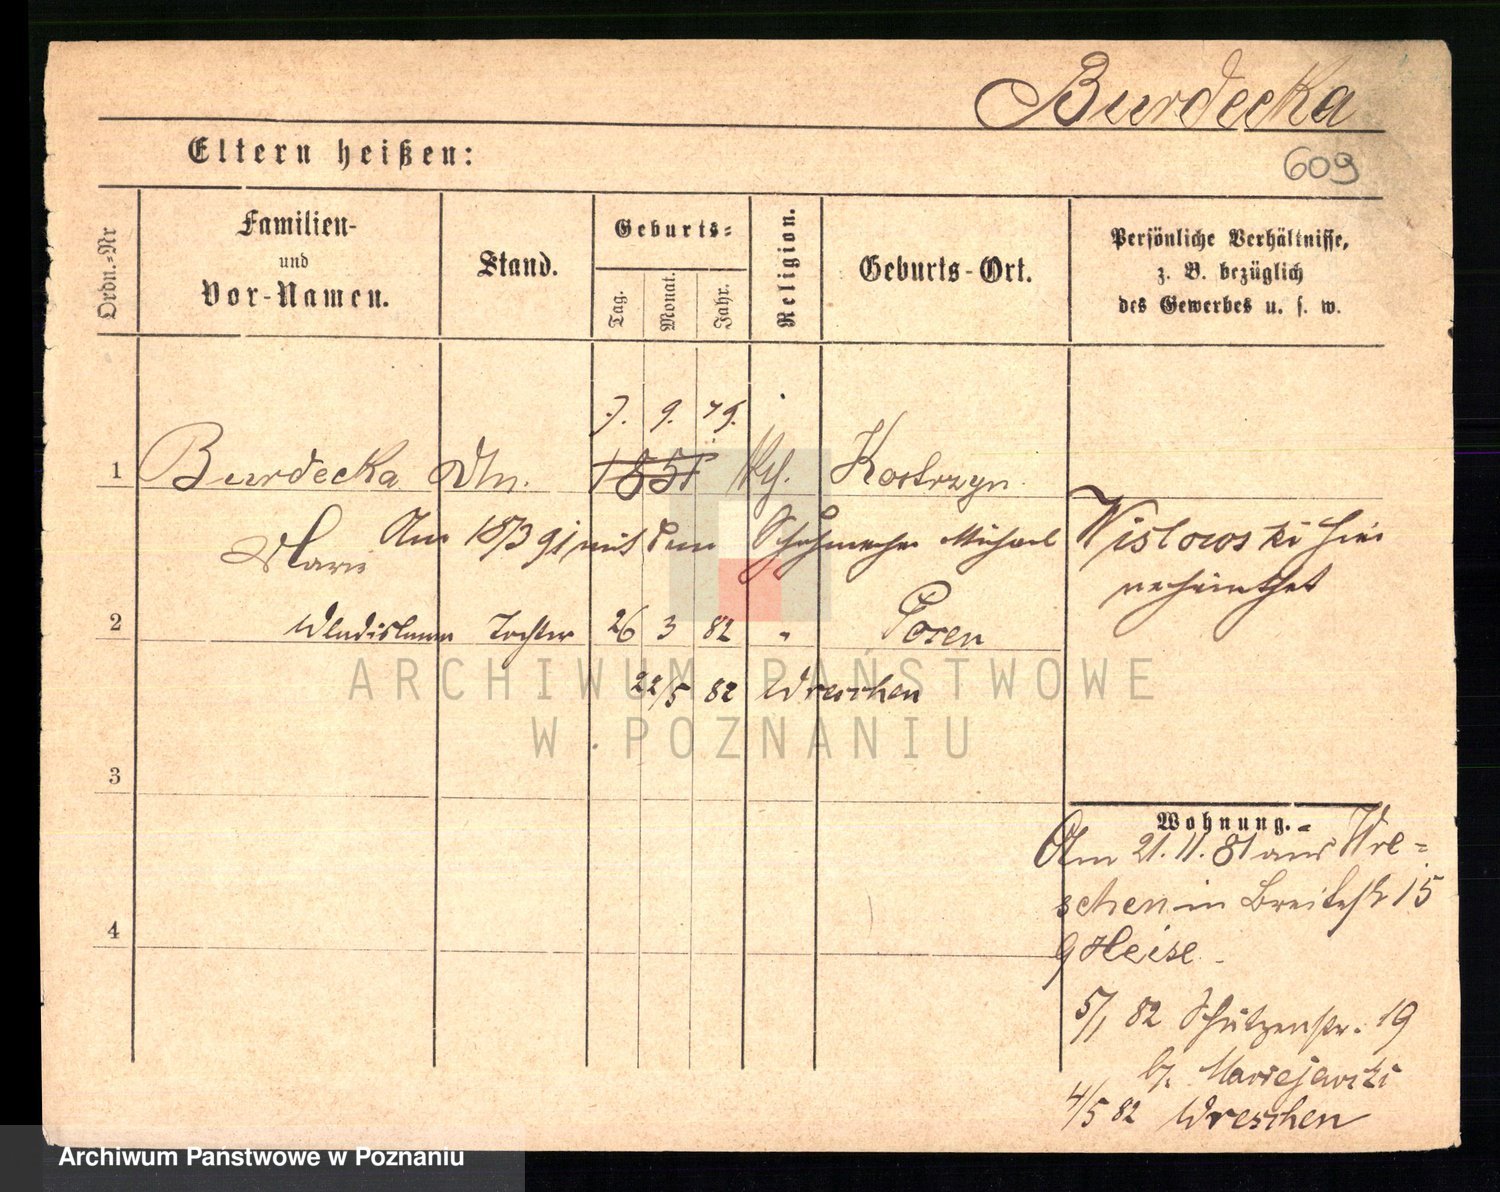 Burdecka
Eltern heißen:
609
Ordn.-Nr
Familien-
und
Vor-Namen.
Stand.
Geburts-
Tag.
Monat.
Jahr.
Religion.
Geburts-Ort.
Persönliche Verhältnisse,
z. B. bezüglich
des Gewerbes u. s. w.
7. 9. 75.
1 Burdecka Dn. 1851 kth. Kostrzyn
Marie Am mit dem Schuhmacher Michael Wislowski hier
verheirathet
2 Wladislawa Tochter 26 3 82 " Posen
22/5 82 Wreschen
ARCHIWUM PAŃSTWOWE
W POZNANIU
3
Wohnung.
Am 21.11.81 aus Wre-
schen in Breitestr 15
Heise
4
5/1 82 Schützenstr. 19
b. Maciejewski
4/5 82 Wreschen
Archiwum Państwowe w Poznaniu